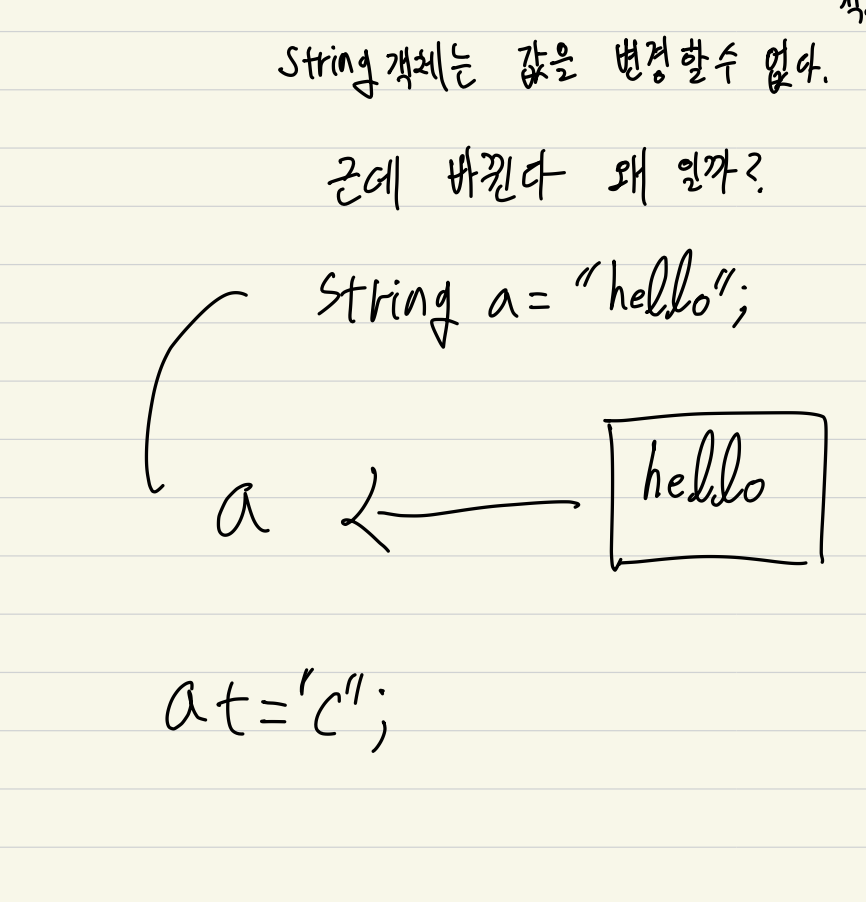 String 객체는 값을 변경할 수 없다.
근데 바뀐다 왜 일까?
String a = "hello";
a
hello
a t="c";